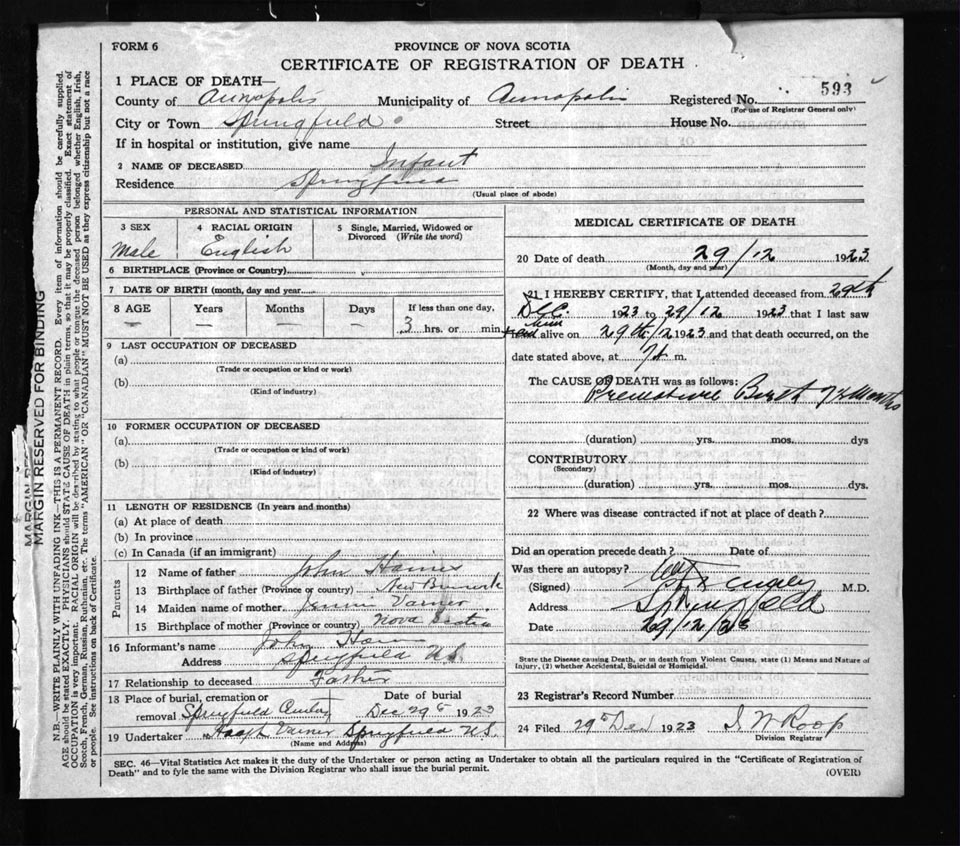 FORM 6
PROVINCE OF NOVA SCOTIA
CERTIFICATE OF REGISTRATION OF DEATH
1 PLACE OF DEATH—
County of Annapolis Municipality of Annapolis Registered No. 593
(For use of Registrar General only)
City or Town Springfield Street House No.
If in hospital or institution, give name
2 NAME OF DECEASED Infant
Residence Springfield
(Usual place of abode)
PERSONAL AND STATISTICAL INFORMATION
3 SEX 4 RACIAL ORIGIN 5 Single, Married, Widowed or
Divorced (Write the word)
Male English
6 BIRTHPLACE (Province or Country)
7 DATE OF BIRTH (month, day and year)
8 AGE Years Months Days If less than one day,
— — — — 3 hrs. or min.
9 LAST OCCUPATION OF DECEASED
(a)
(Trade or occupation or kind or work)
(b)
(Kind of industry)
10 FORMER OCCUPATION OF DECEASED
(a)
(Trade or occupation or kind of work)
(b)
(Kind of Industry)
11 LENGTH OF RESIDENCE (In years and months)
(a) At place of death
(b) In province
(c) In Canada (if an immigrant)
Parents
12 Name of father John
13 Birthplace of father (Province or country) New Brunswick
14 Maiden name of mother Jennie Varner
15 Birthplace of mother (Province or country) Nova Scotia
16 Informant's name John
Address Springfield N.S.
17 Relationship to deceased Father
18 Place of burial, cremation or Date of burial
removal Springfield Dec 29 1923
19 Undertaker Varner Springfield N.S.
(Name and Address)
MEDICAL CERTIFICATE OF DEATH
20 Date of death 29/12 1923
(Month, day and year)
21 I HEREBY CERTIFY, that I attended deceased from 29th
Dec. 1923 to 29/12 1923 that I last saw
him alive on 29th/12 1923 and that death occurred, on the
date stated above, at m.
The CAUSE OF DEATH was as follows:
Premature Birth 7½ Months
(duration) yrs. mos. dys
CONTRIBUTORY
(Secondary)
(duration) yrs. mos. dys.
22 Where was disease contracted if not at place of death?
Did an operation precede death? Date of
Was there an autopsy?
(Signed) M.D.
Address Springfield
Date 29/12/23
State the Disease causing Death, or in death from Violent Causes, state (1) Means and Nature of
Injury, (2) whether Accidental, Suicidal or Homicidal.
23 Registrar's Record Number
24 Filed 29th Dec 1923 Roop
Division Registrar
SEC. 46—Vital Statistics Act makes it the duty of the Undertaker or person acting as Undertaker to obtain all the particulars required in the "Certificate of Registration of
Death" and to fyle the same with the Division Registrar who shall issue the burial permit.
(OVER)
MARGIN RESERVED FOR BINDING
N.B.—WRITE PLAINLY WITH UNFADING INK—THIS IS A PERMANENT RECORD. Every item of information should be carefully supplied.
AGE should be stated EXACTLY. PHYSICIANS should STATE CAUSE OF DEATH in plain terms, so that it may be properly classified. Exact statement of
OCCUPATION is very important. RACIAL ORIGIN will be described by stating to what people or tongue the deceased person belonged whether English, Irish,
Scotch, French, German, Russian, Ruthenian, etc. The terms "AMERICAN" OR "CANADIAN" MUST NOT BE USED as they express citizenship but not a race
or people. See instructions on back of Certificate.